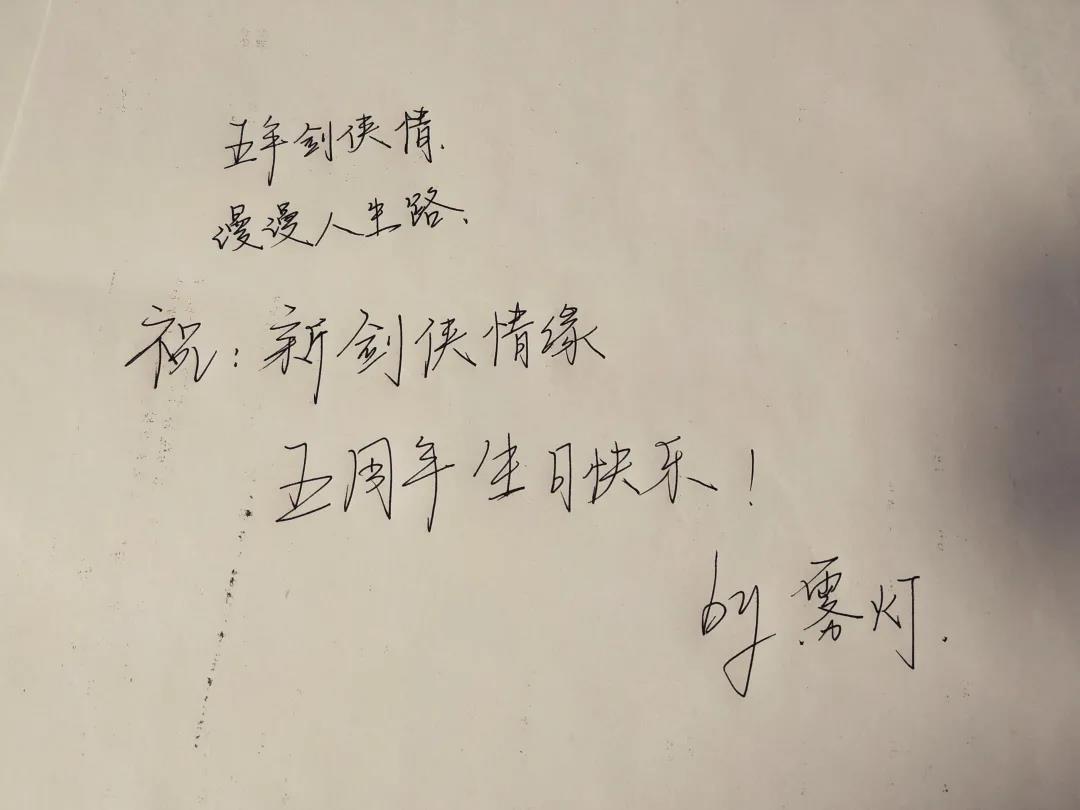 五年剑侠情.
漫漫人生路、
祝:新剑侠情缘
五周年生日快乐!
by 雾灯.